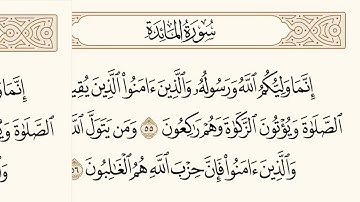 سُورَةُ المَائِدَةِ
إِنَّمَا وَلِيُّكُمُ ٱللَّهُ وَرَسُولُهُۥ وَٱلَّذِينَ ءَامَنُوا۟ ٱلَّذِينَ
ٱلصَّلَوٰةَ وَيُؤْتُونَ ٱلزَّكَوٰةَ وَهُمْ رَٰكِعُونَ ٥٥ وَمَن يَتَوَلَّ
وَٱلَّذِينَ ءَامَنُوا۟ فَإِنَّ حِزْبَ ٱللَّهِ هُمُ ٱلْغَٰلِبُونَ